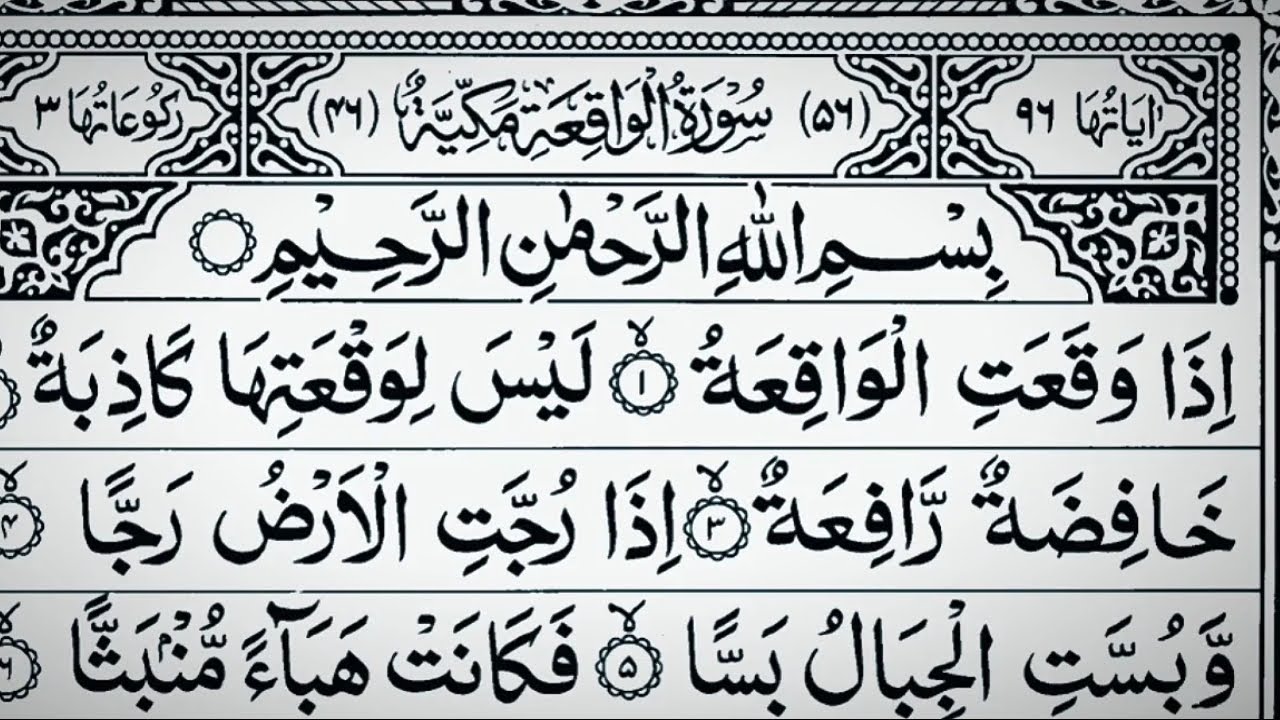 اٰيَاتُهَا ٩٦ (٥٦) سُوْرَةُ الْوَاقِعَةِ مَكِّيَّةٌ (٤٦) رُكُوْعَاتُهَا ٣
بِسْمِ اللّٰهِ الرَّحْمٰنِ الرَّحِيْمِ
اِذَا وَقَعَتِ الْوَاقِعَةُ ۙ﴿١﴾ لَيْسَ لِوَقْعَتِهَا كَاذِبَةٌ
خَافِضَةٌ رَّافِعَةٌ ۙ﴿٣﴾ اِذَا رُجَّتِ الْاَرْضُ رَجًّا ۙ﴿٤﴾
وَّبُسَّتِ الْجِبَالُ بَسًّا ۙ﴿٥﴾ فَكَانَتْ هَبَآءً مُّنْۢبَثًّا ۙ﴿٦﴾